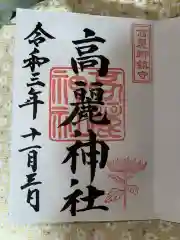 高麗郷鎮守
高麗神社
令和三年十一月三日